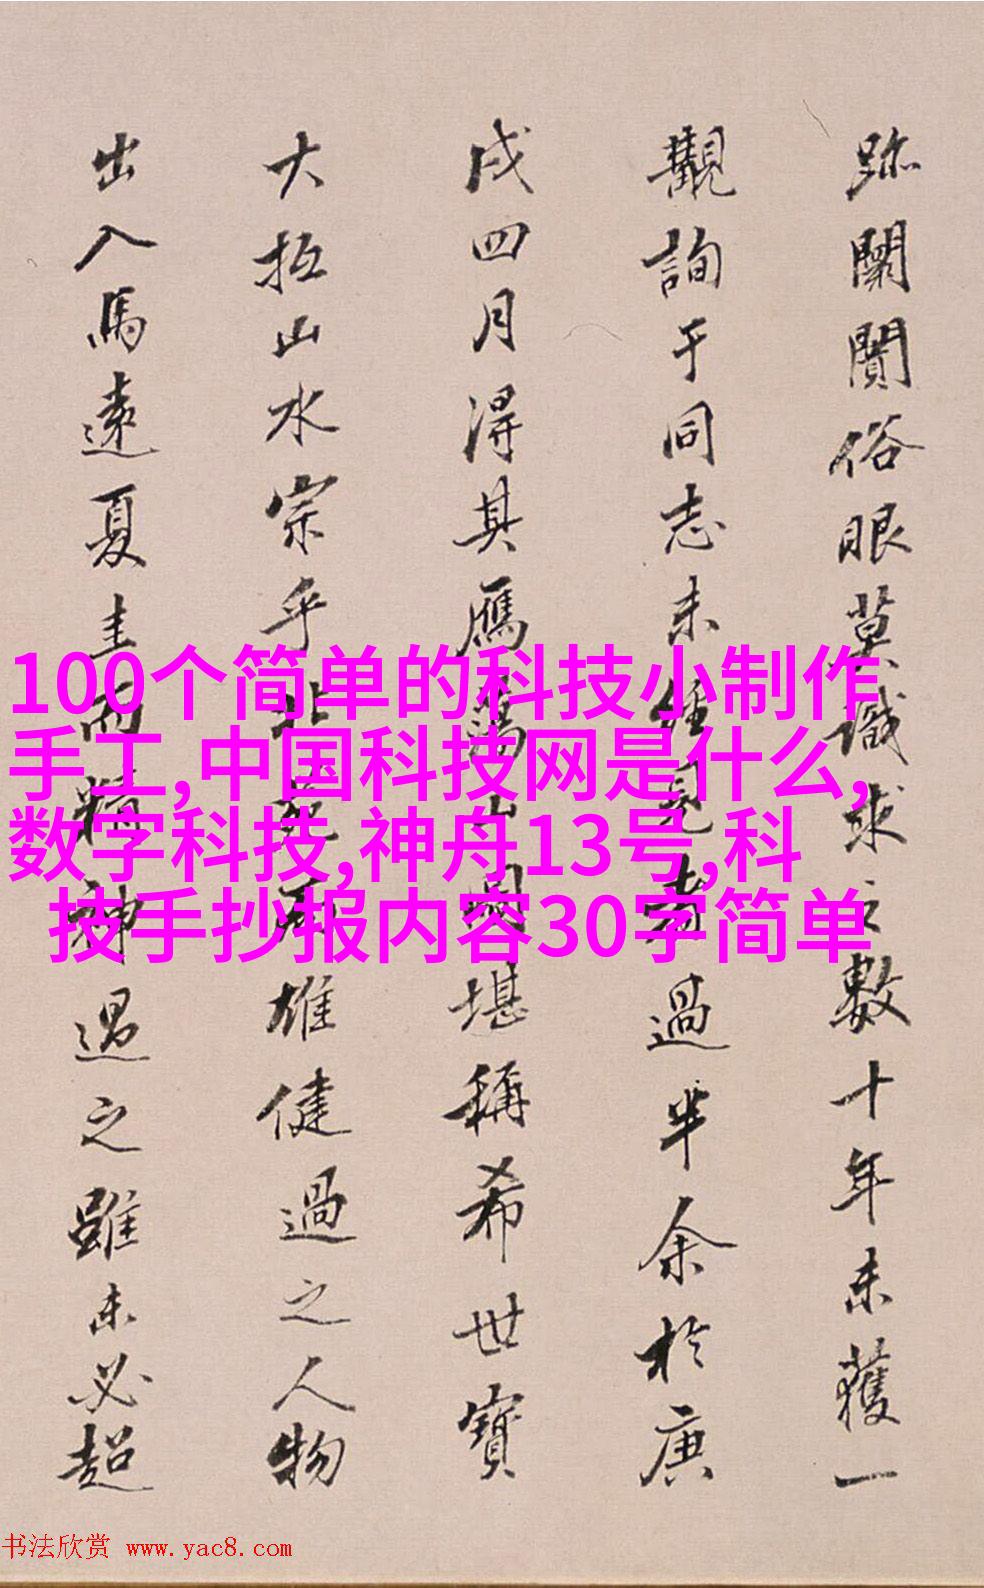 跡闤闠俗眼莫識求之數十年未獲一
觀詢于同志未經見者過半余於庚
戌四月淂其鴈蕩山圖堪稱希世寶
大抵山水宗乎北苑而雄健過之人物
出入馬遠夏圭而精神過之雖未必超
100个简单的科技小制作
手工,中国科技网是什么,
数字科技,神舟13号,科
技手抄报内容30字简单
书法欣赏 www.yac8.com